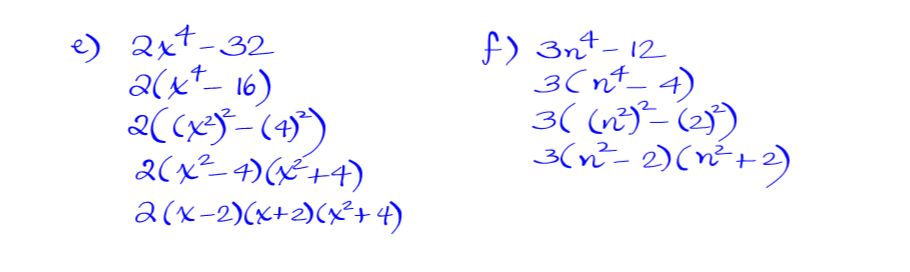 e) 2x⁴-32
2(x⁴-16)
2((x²)²-(4)²)
2(x²-4)(x²+4)
2(x-2)(x+2)(x²+4)
f) 3n⁴-12
3(n⁴-4)
3((n²)²-(2)²)
3(n²-2)(n²+2)